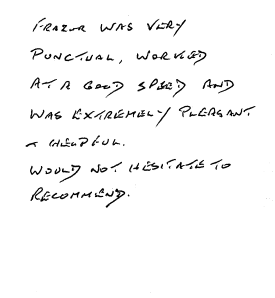 FRAZOR WAS VERY
PUNCTUAL, WORKED
AT A GOOD SPEED AND
WAS EXTREMELY PLEASANT
& HELPFUL.
WOULD NOT HESITATE TO
RECOMMEND.